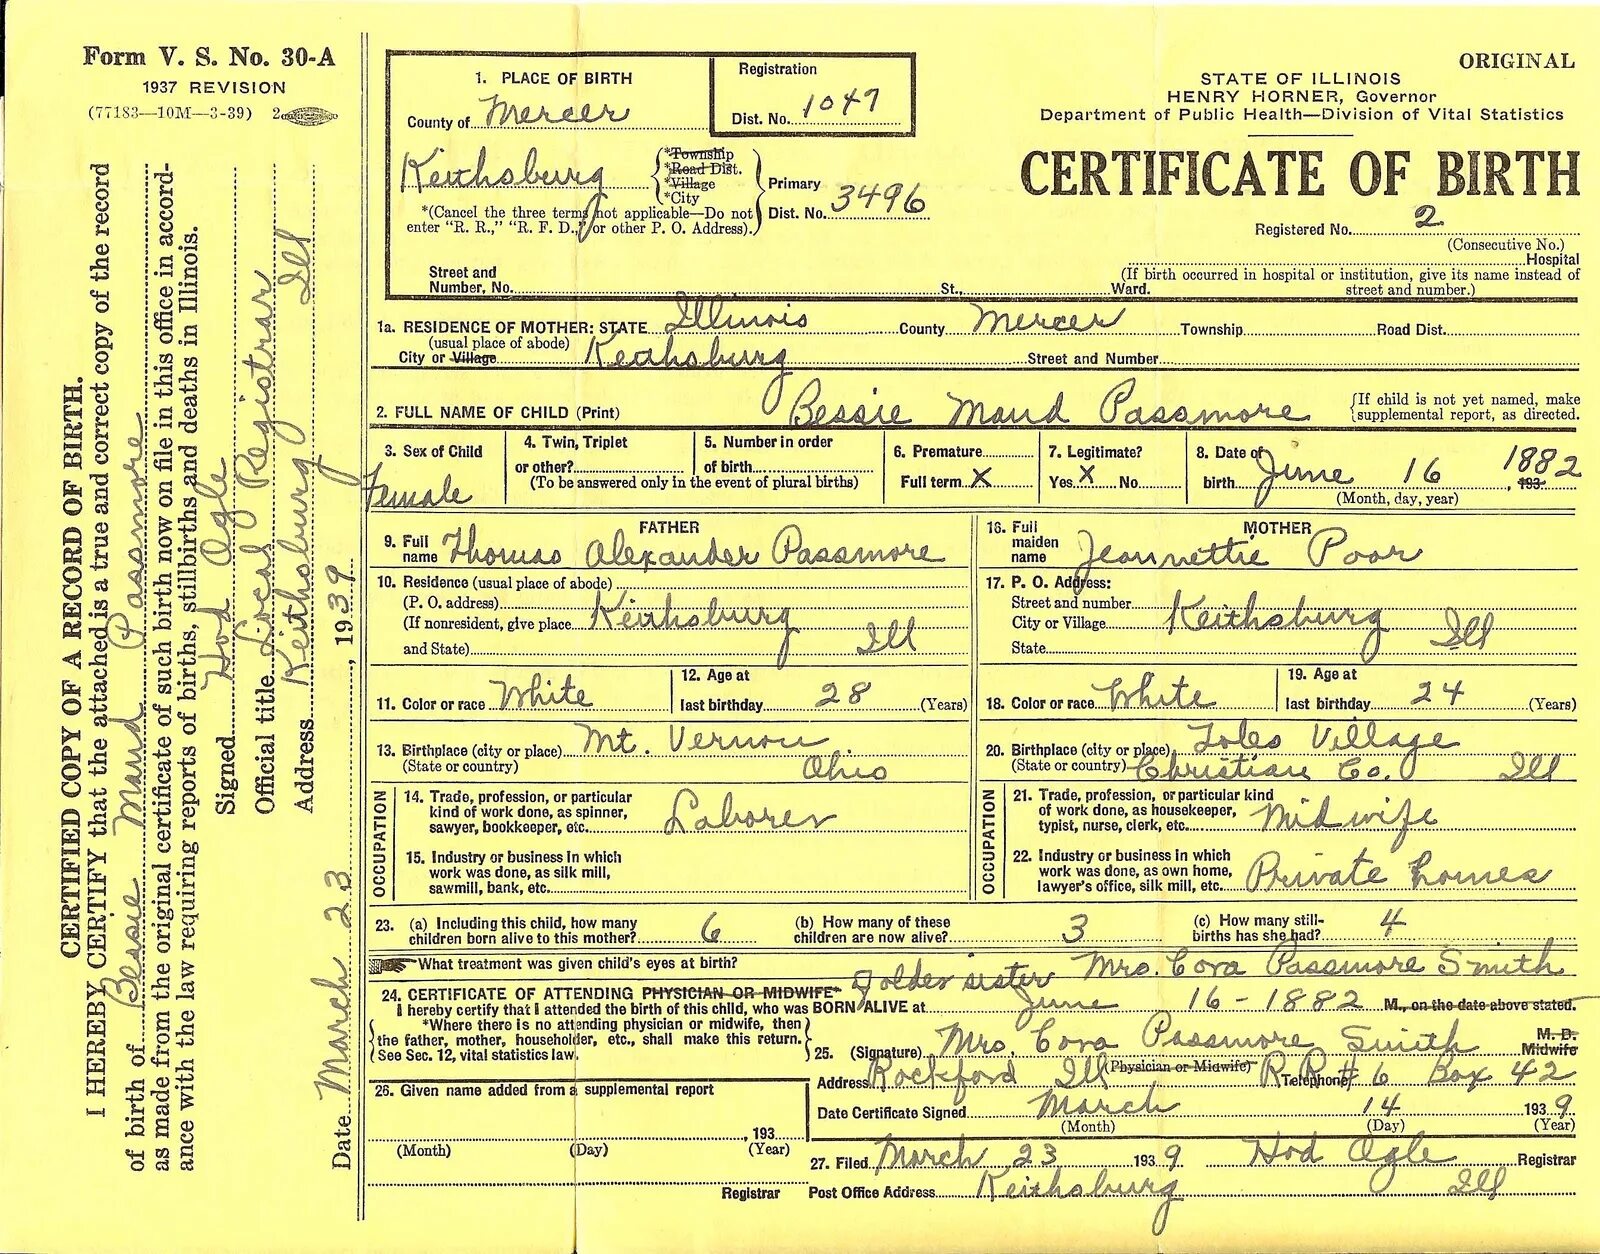 Form V. S. No. 30-A
1937 REVISION
(77183—10M—3-39) 2
CERTIFIED COPY OF A RECORD OF BIRTH.
I HEREBY CERTIFY that the attached is a true and correct copy of the record
of birth of Bessie Maud Passmore
as made from the original certificate of such birth now on file in this office in accord-
ance with the law requiring reports of births, stillbirths and deaths in Illinois.
Signed Hod Ogle
Official title Local Registrar
Address Keithsburg Ill
Date March 23, 1939
ORIGINAL
STATE OF ILLINOIS
HENRY HORNER, Governor
Department of Public Health—Division of Vital Statistics
CERTIFICATE OF BIRTH
Registered No. 2
(Consecutive No.)
Hospital
(If birth occurred in hospital or institution, give its name instead of
street and number.)
1. PLACE OF BIRTH
County of Mercer
Registration
Dist. No. 1047
Keithsburg
*Township
*Road Dist.
*Village
*City
Primary
Dist. No. 3496
*(Cancel the three terms not applicable—Do not
enter "R. R.," "R. F. D.," or other P. O. Address).
Street and
Number, No. St., Ward.
1a. RESIDENCE OF MOTHER: STATE Illinois County Mercer Township Road Dist.
(usual place of abode)
City or Village Keithsburg Street and Number
2. FULL NAME OF CHILD (Print) Bessie Maud Passmore
{If child is not yet named, make
supplemental report, as directed.
3. Sex of Child
Female
4. Twin, Triplet
or other?
5. Number in order
of birth
(To be answered only in the event of plural births)
6. Premature
Full term X
7. Legitimate?
Yes X No
8. Date of
birth June 16, 1882 193
(Month, day, year)
FATHER
9. Full
name Thomas Alexander Passmore
10. Residence (usual place of abode)
(P. O. address) Keithsburg
(If nonresident, give place
and State) Ill
11. Color or race White
12. Age at
last birthday 28 (Years)
13. Birthplace (city or place) Mt. Vernon
(State or country) Ohio
OCCUPATION
14. Trade, profession, or particular
kind of work done, as spinner,
sawyer, bookkeeper, etc. Laborer
15. Industry or business in which
work was done, as silk mill,
sawmill, bank, etc.
MOTHER
16. Full
maiden
name Jeannettie Poor
17. P. O. Address:
Street and number
City or Village Keithsburg
State Ill
18. Color or race White
19. Age at
last birthday 24 (Years)
20. Birthplace (city or place) Village
(State or country) Christian Co. Ill
OCCUPATION
21. Trade, profession, or particular kind
of work done, as housekeeper,
typist, nurse, clerk, etc. Midwife
22. Industry or business in which
work was done, as own home,
lawyer's office, silk mill, etc. Private homes
23. (a) Including this child, how many
children born alive to this mother? 6
(b) How many of these
children are now alive? 3
(c) How many still-
births has she had? 4
What treatment was given child's eyes at birth?
24. CERTIFICATE OF ATTENDING PHYSICIAN OR MIDWIFE* of older sister Mrs. Cora Passmore Smith
I hereby certify that I attended the birth of this child, who was BORN ALIVE at June 16-1882 M., on the date above stated.
{*Where there is no attending physician or midwife, then
the father, mother, householder, etc., shall make this return.
See Sec. 12, vital statistics law.}
25. (Signature) Mrs. Cora Passmore Smith M. D.
Midwife
(Physician or Midwife)
Address Rockford Ill Telephone RR #6 Box 42
Date Certificate Signed March 14 1939
(Month) (Day) (Year)
26. Given name added from a supplemental report
, 193
(Month) (Day) (Year)
Registrar
27. Filed March 23 1939 Hod Ogle Registrar
Post Office Address Keithsburg Ill